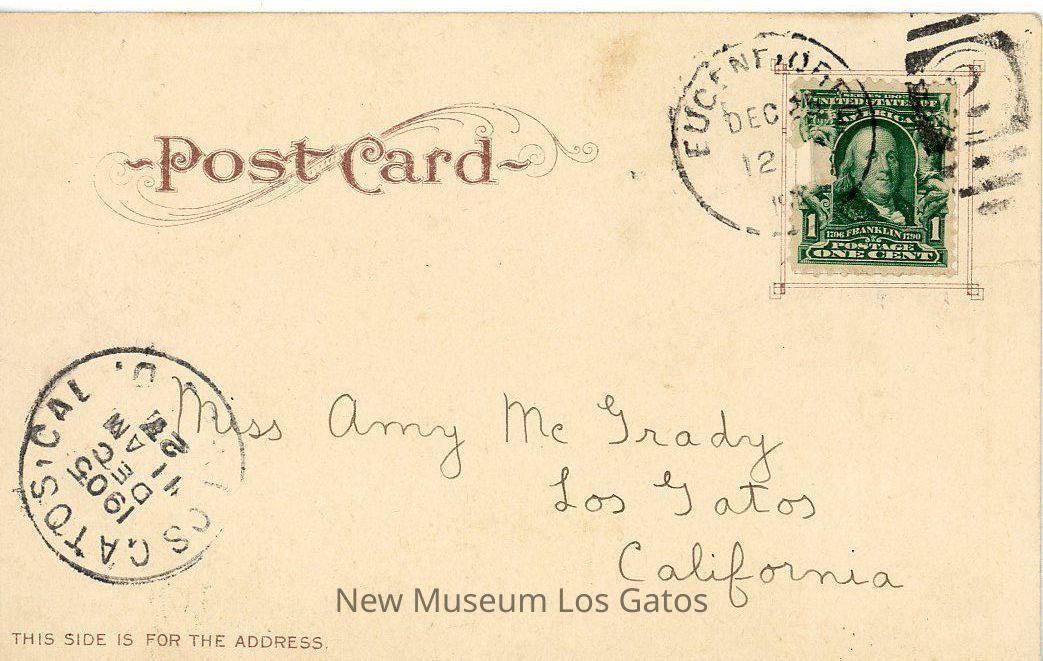 Post Card
EUGENE, OREG.
DEC
12
SERIES 1902
UNITED STATES OF
AMERICA
1 1
1706 FRANKLIN 1790
POSTAGE
ONE CENT
LOS GATOS, CAL
11 AM
DEC
1905
Miss Amy Mc Grady
Los Gatos
California
New Museum Los Gatos
THIS SIDE IS FOR THE ADDRESS.